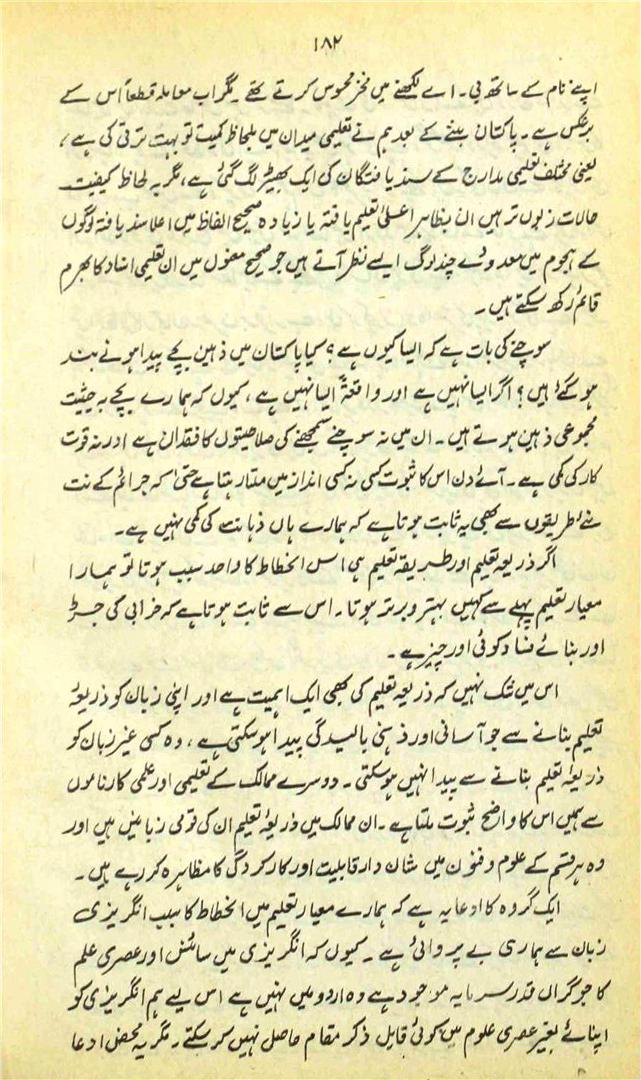 ۱۸۲
اپنے نام کے ساتھ بی۔ اے لکھنے میں فخر محسوس کرتے تھے۔ مگر اب معاملہ قطعاً اس کے
برعکس ہے۔ پاکستان بننے کے بعد ہم نے تعلیمی میدان میں بلحاظ کمیت تو بہت ترقی کی ہے،
یعنی مختلف تعلیمی مدارج کے سند یافتگان کی ایک بھیڑ لگ گئی ہے، مگر بہ لحاظ کیفیت
حالات زبوں تر ہیں ان بظاہر اعلیٰ تعلیم یافتہ یا زیادہ صحیح الفاظ میں اعلا سند یافتہ لوگوں
کے ہجوم میں معدودے چند لوگ ایسے نظر آتے ہیں جو صحیح معنوں میں ان تعلیمی اسناد کا بھرم
قائم رکھ سکتے ہیں۔
سوچنے کی بات ہے کہ ایسا کیوں ہے؟ کیا پاکستان میں ذہین بچے پیدا ہونے بند
ہو گئے ہیں؟ اگر ایسا نہیں ہے اور واقعۃً ایسا نہیں ہے، کیوں کہ ہمارے بچے بہ حیثیت
مجموعی ذہین ہوتے ہیں۔ ان میں نہ سوچنے سمجھنے کی صلاحیتوں کا فقدان ہے اور نہ قوت
کار کی کمی ہے۔ آئے دن اس کا ثبوت کسی نہ کسی انداز میں ملتا رہتا ہے حتیٰ کہ جرائم کے نت
نئے طریقوں سے بھی یہ ثابت ہوتا ہے کہ ہمارے ہاں ذہانت کی کمی نہیں ہے۔
اگر ذریعۂ تعلیم اور طریقۂ تعلیم ہی اس انحطاط کا واحد سبب ہوتا تو ہمارا
معیار تعلیم پہلے سے کہیں بہتر و برتر ہوتا۔ اس سے ثابت ہوتا ہے کہ خرابی کی جڑ
اور بنائے فساد کوئی اور چیز ہے۔
اس میں شک نہیں کہ ذریعۂ تعلیم کی بھی ایک اہمیت ہے اور اپنی زبان کو ذریعۂ
تعلیم بنانے سے جو آسانی اور ذہنی بالیدگی پیدا ہو سکتی ہے، وہ کسی غیر زبان کو
ذریعۂ تعلیم بنانے سے پیدا نہیں ہو سکتی۔ دوسرے ممالک کے تعلیمی اور علمی کارناموں
سے ہمیں اس کا واضح ثبوت ملتا ہے۔ ان ممالک میں ذریعۂ تعلیم ان کی قومی زبانیں ہیں اور
وہ ہر قسم کے علوم و فنون میں شان دار قابلیت اور کارکردگی کا مظاہرہ کر رہے ہیں۔
ایک گروہ کا ادعا یہ ہے کہ ہمارے معیار تعلیم میں انحطاط کا سبب انگریزی
زبان سے ہماری بے پروائی ہے۔ کیوں کہ انگریزی میں سائنس اور عصری علم
کا جو گراں قدر سرمایہ موجود ہے وہ اردو میں نہیں ہے اس لیے ہم انگریزی کو
اپنائے بغیر عصری علوم میں کوئی قابل ذکر مقام حاصل نہیں کر سکتے۔ مگر یہ محض ادعا